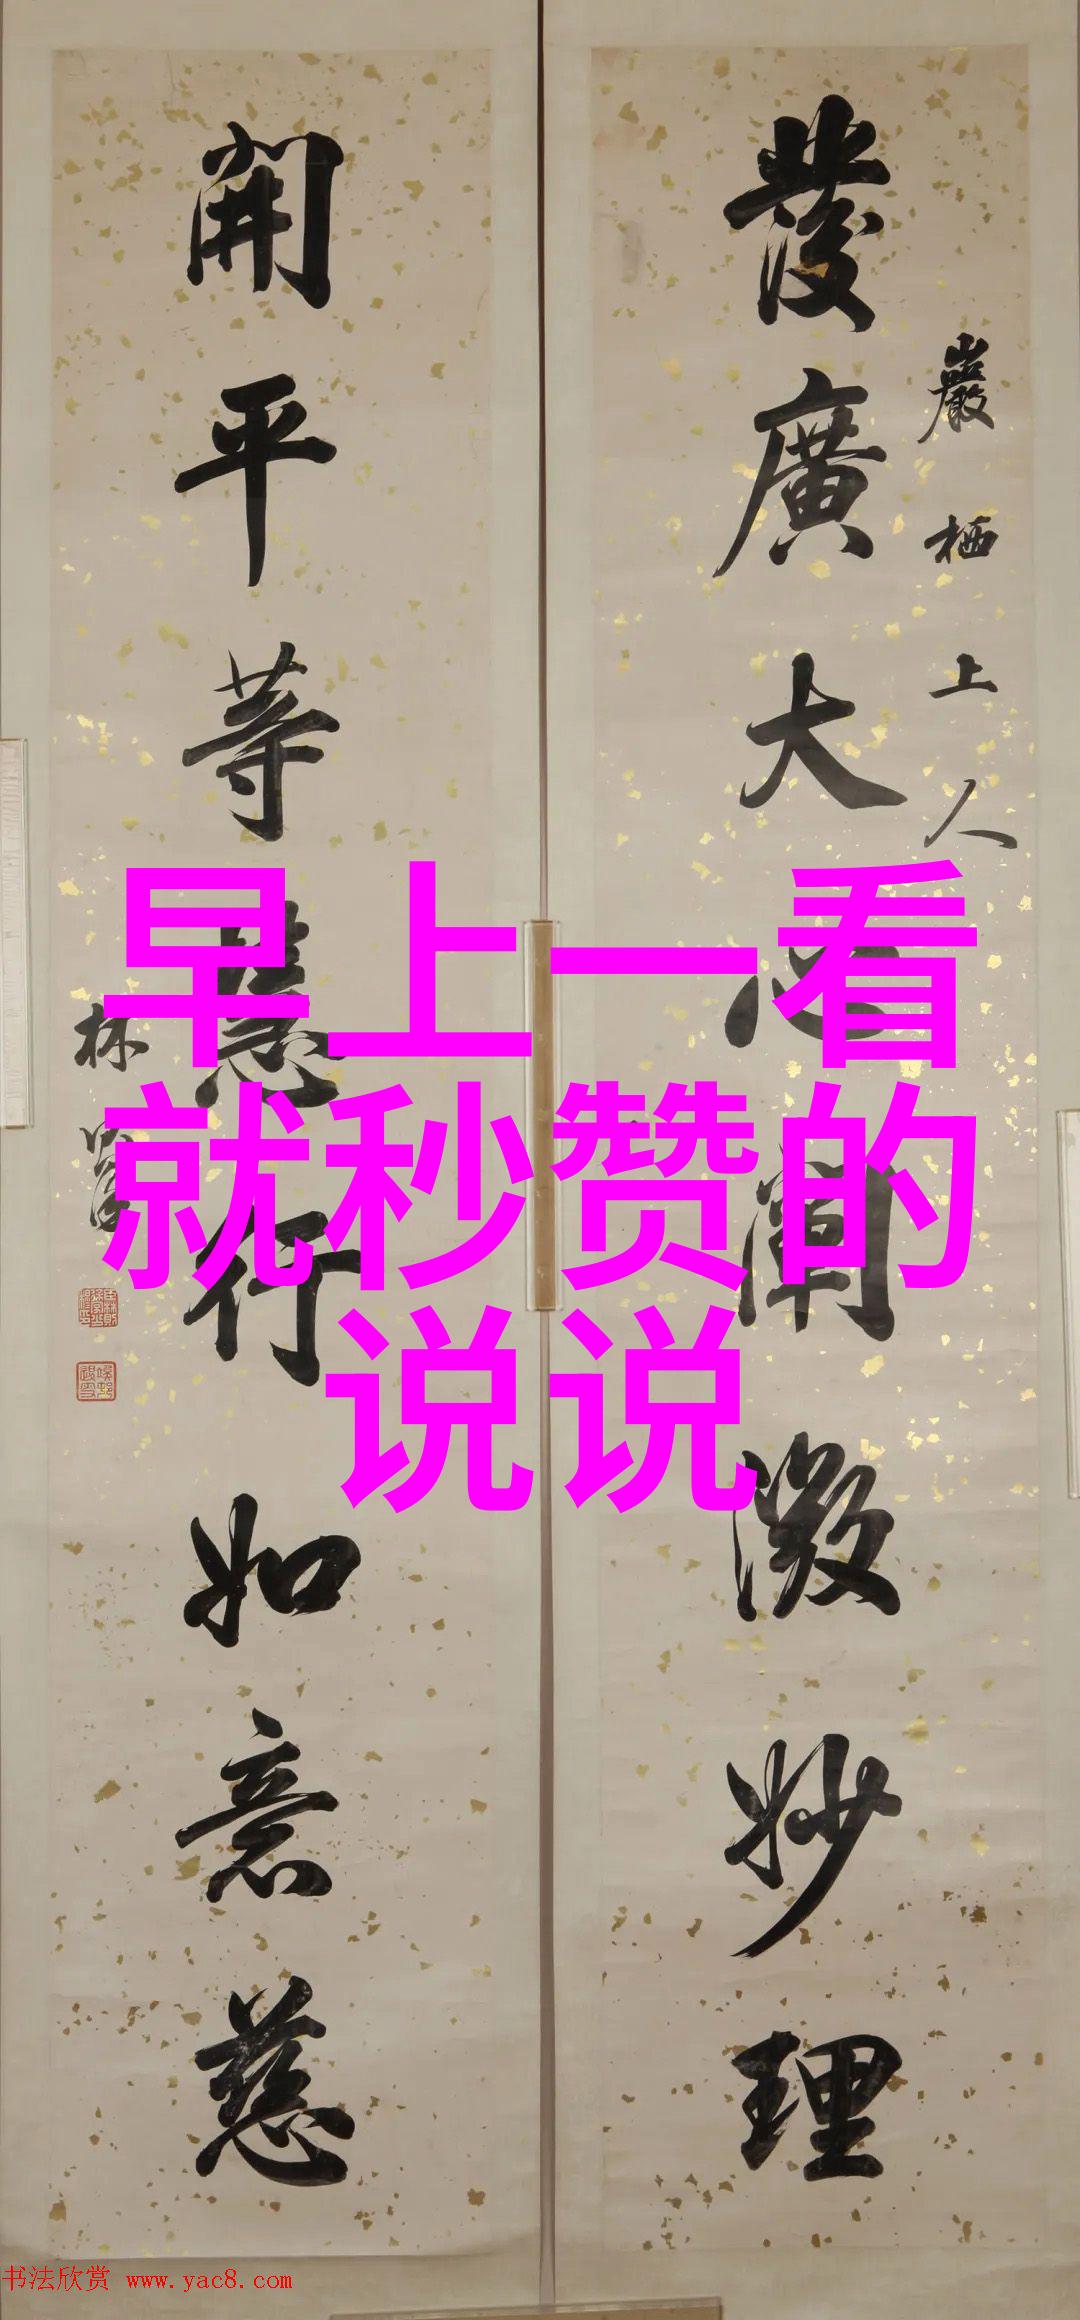 發廣大心闡微妙理
巖栖上人
開平等慧行如意慈
林
早上一看
就秒赞的
说说
书法欣赏 www.yac8.com